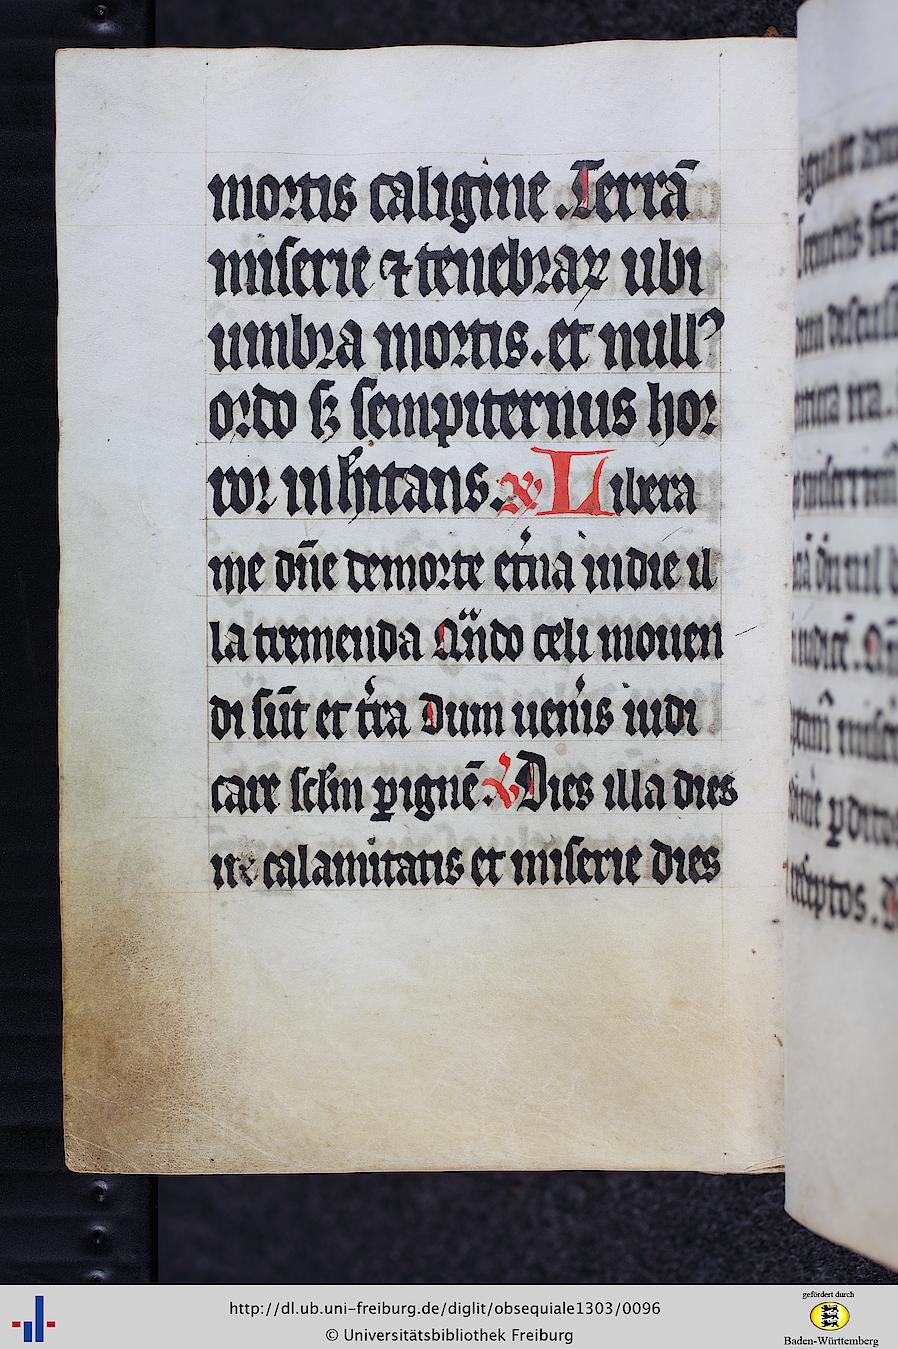 mortis caligine. Terrā
miserie ⁊ tenebraꝝ ubi
umbra mortis. et null᷒
ordo sꝫ sempiternus hor
ror inhītans. ℟ Libera
me dn̄e de morte et̾na in die il
la tremenda Qn̄do celi mouen
di sūt et t̾ra Dum uen̾is iudi
care sclm̄ ꝑ ignē. ℣ Dies illa dies
ire calamitatis et miserie dies
http://dl.ub.uni-freiburg.de/diglit/obsequiale1303/0096
© Universitätsbibliothek Freiburg
gefördert durch
Baden-Württemberg